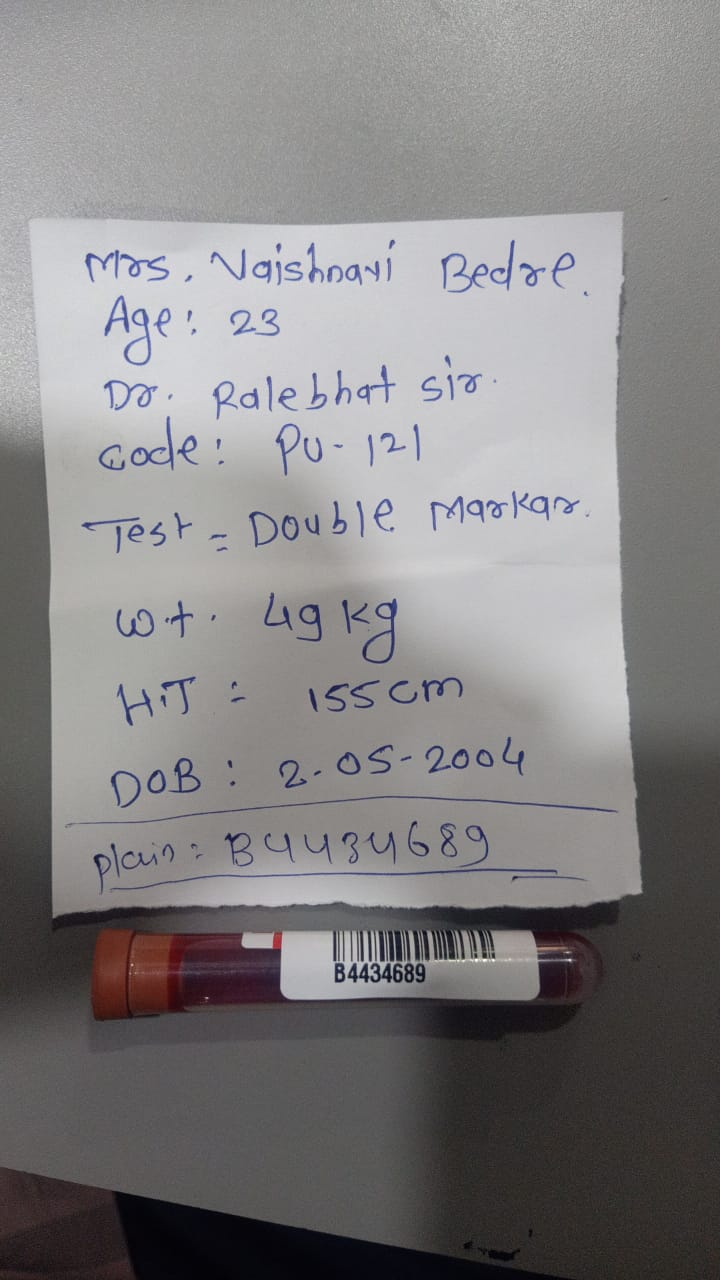 Mrs. Vaishnavi Bedre.
Age: 23
Dr. Ralebhat sir.
Code: PU-121
Test = Double Markar.
Wt. 49 kg
HiT = 155 cm
DOB: 2-05-2004
plain: B4434689
B4434689